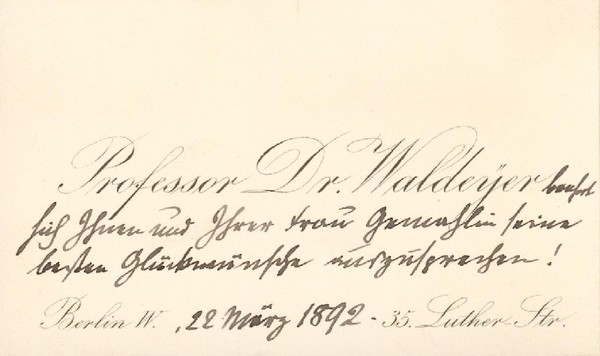 Professor Dr. Waldeÿer beehrt
sich Ihnen und Ihrer Frau Gemahlin seine
besten Glückwünsche auszusprechen!
Berlin W. , 22 März 1892 - 35. Luther-Str.